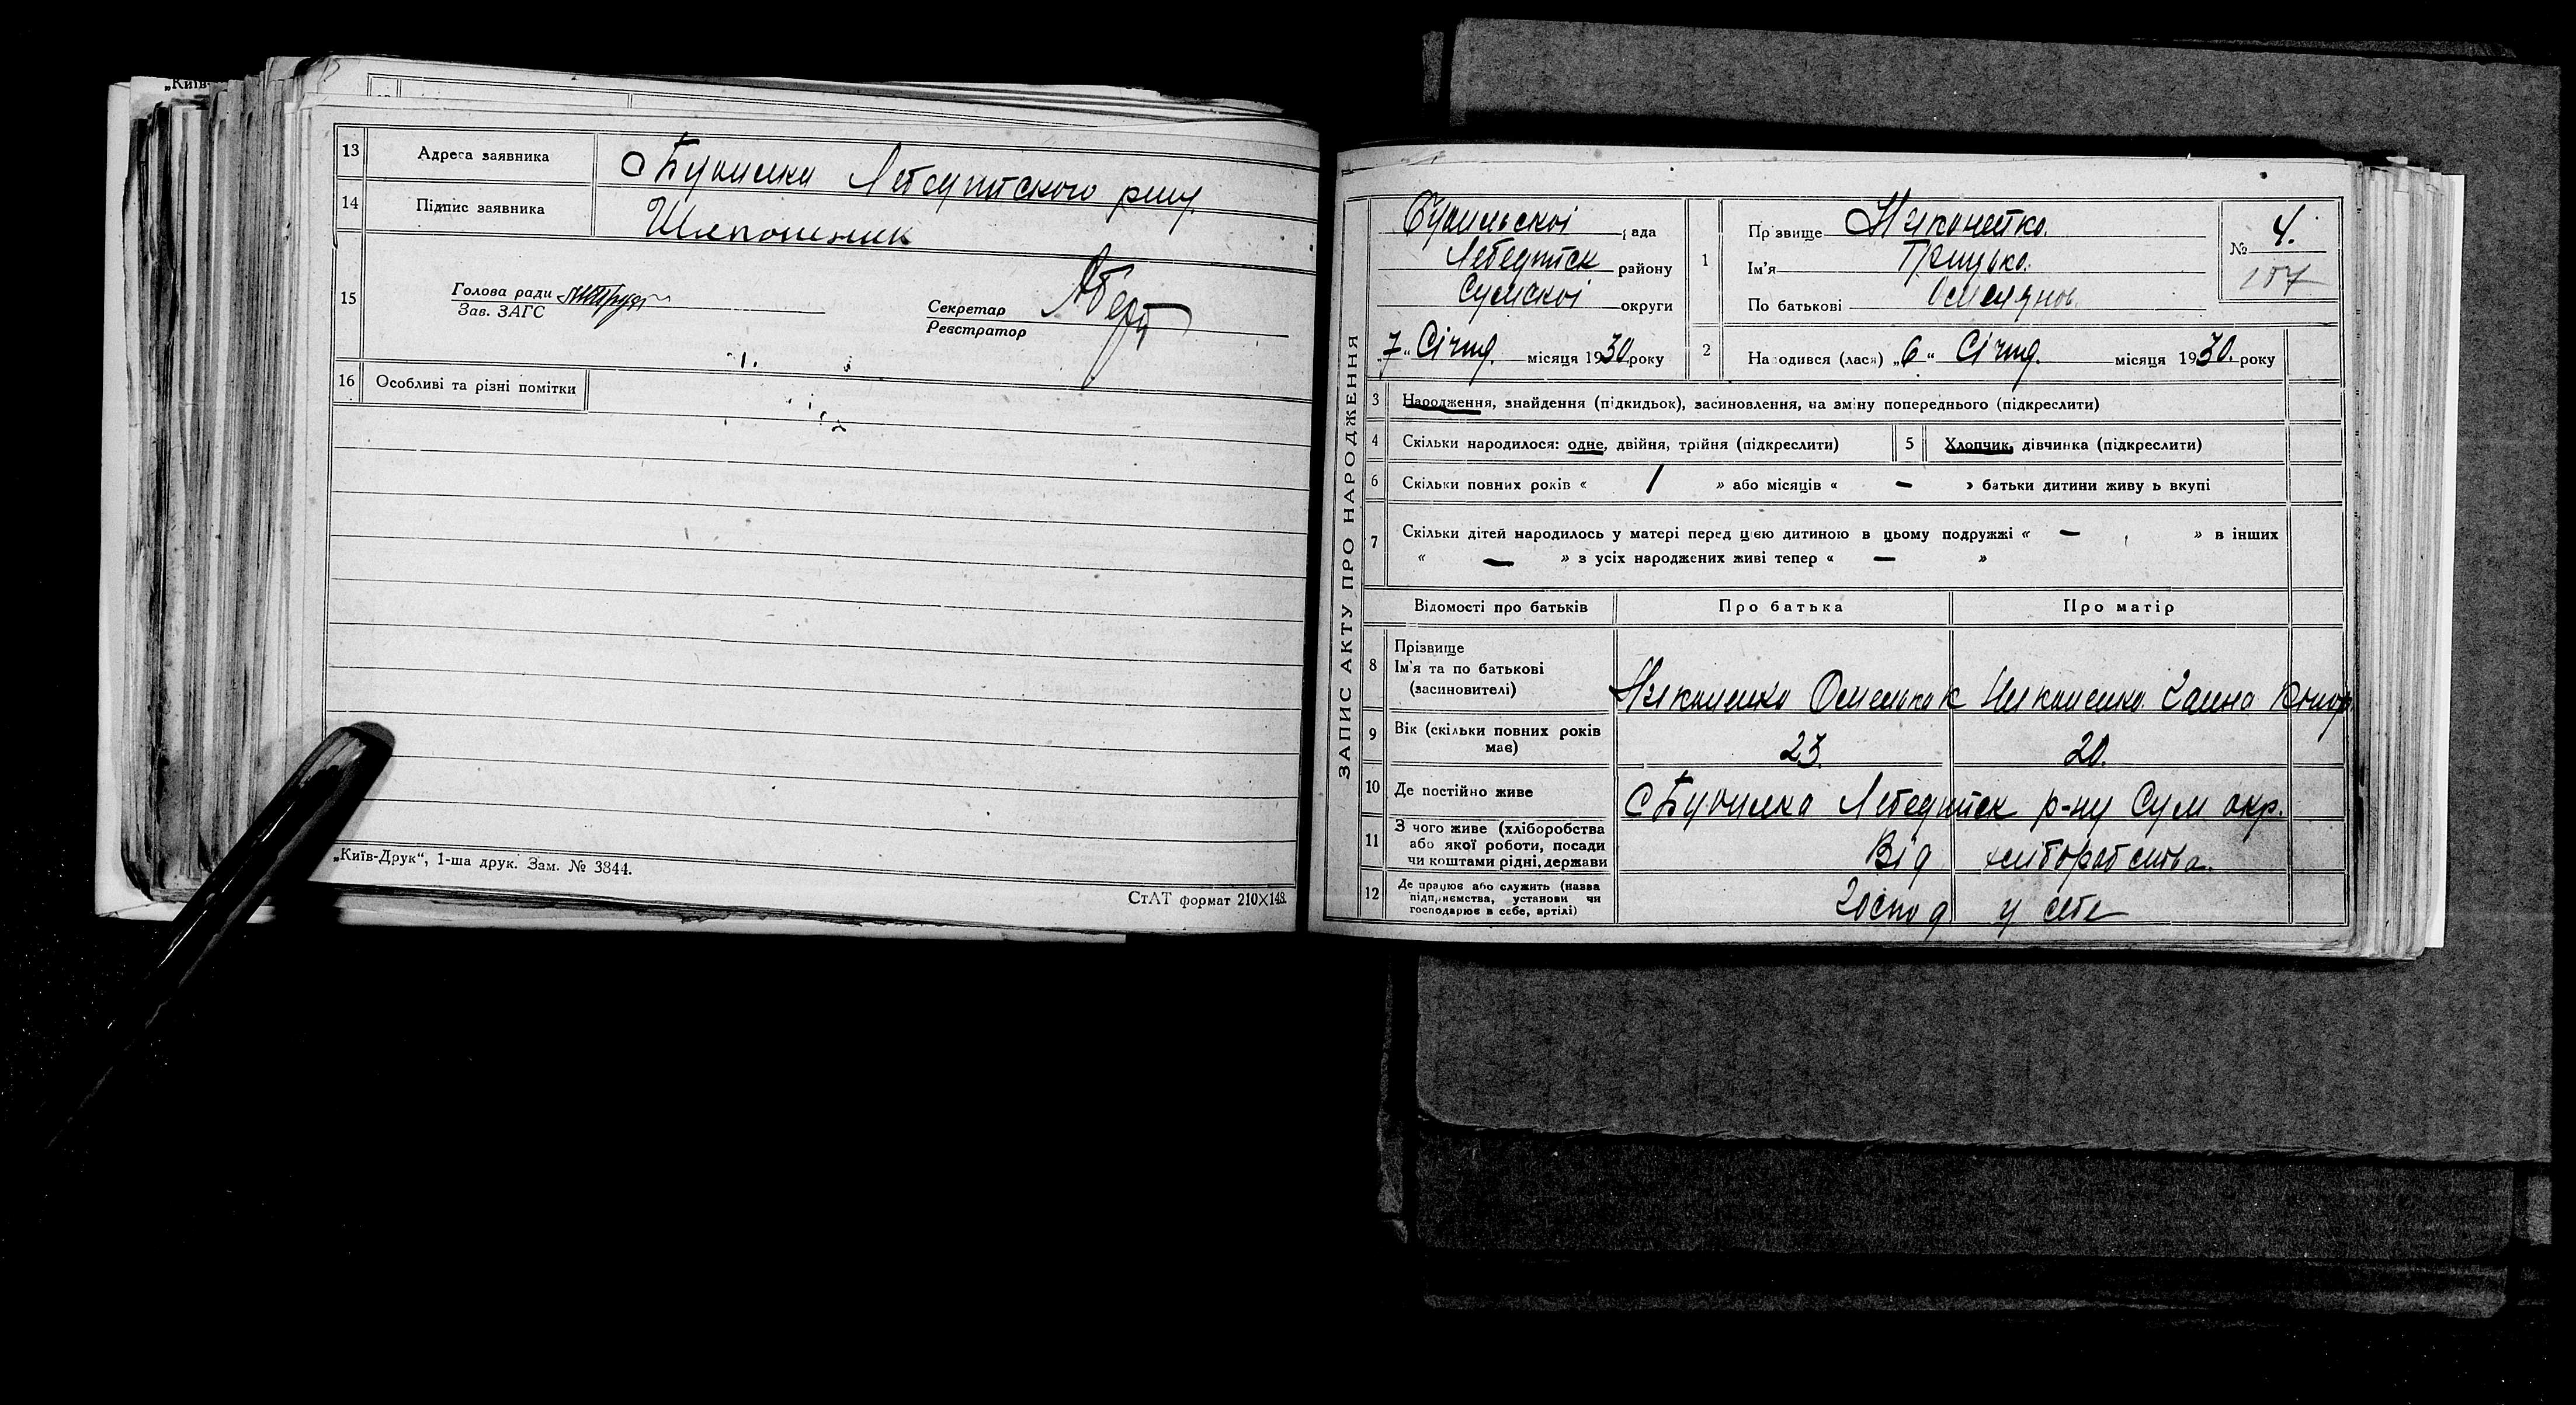 „Київ-
13 Адреса заявника с Буймика Лебединского рну.
14 Підпис заявника Шапошник
15 Голова ради
Зав. ЗАГС
Секретар
Реєстратор
16 Особливі та різні помітки
„Київ-Друк“, 1-ша друк. Зам. № 3844.
СтАТ формат 210×148.
ЗАПИС АКТУ ПРО НАРОДЖЕННЯ
рада
Лебединск району
Сумскої округи
„7“ Січня місяця 1930 року
1 Прізвище Никоненко.
Ім'я Грицько.
По батькові Омелянов.
№ 4.
107
2 Народився (лася) „6“ Січня. місяця 1930. року
3 Народження, знайдення (підкидьок), засиновлення, на зміну попереднього (підкреслити)
4 Скільки народилося: одне, двійня, трійня (підкреслити)
5 Хлопчик, дівчинка (підкреслити)
6 Скільки повних років « 1 » або місяців « — » батьки дитини живуть вкупі
7 Скільки дітей народилось у матері перед цією дитиною в цьому подружжі « — » в інших
« — » з усіх народжених живі тепер « — »
Відомості про батьків Про батька Про матір
8 Прізвище
Ім'я та по батькові
(засиновителі)
Никоненко Омелько К Никоненко Ганна
9 Вік (скільки повних років
має)
23. 20.
10 Де постійно живе с Лебединск р-ну Сум окр.
11 З чого живе (хліборобства
або якої роботи, посади
чи коштами рідні, держави
Від хліборобства.
12 Де працює або служить (назва
підприємства, установи чи
господарює в себе, артілі)
Господ у себе